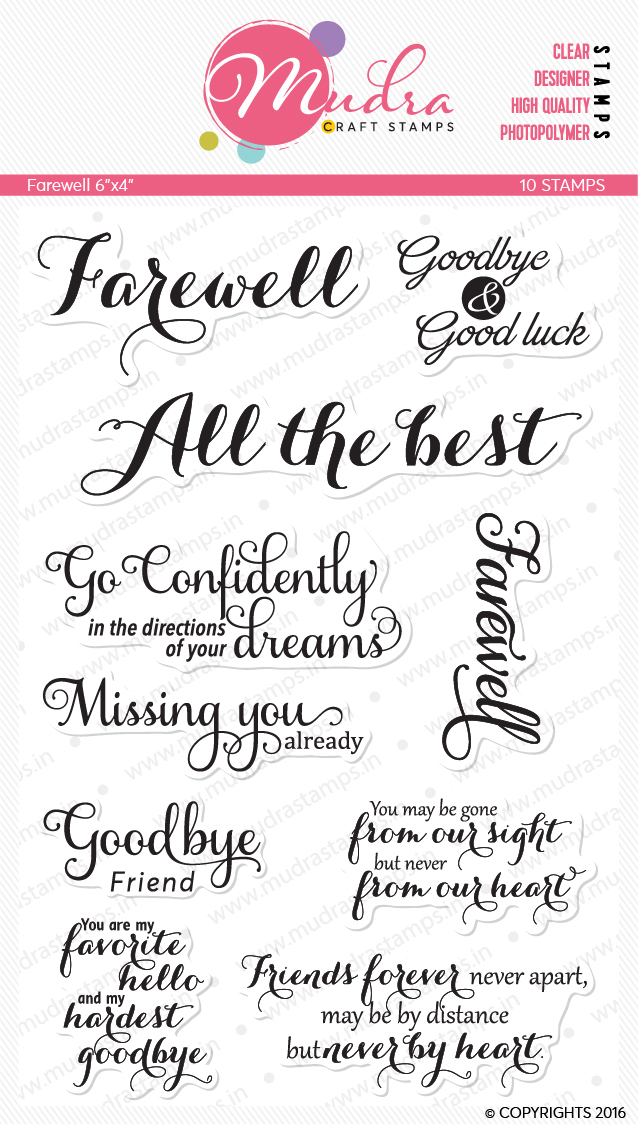 Mudra
CRAFT STAMPS
CLEAR
DESIGNER
HIGH QUALITY
PHOTOPOLYMER
STAMPS
Farewell 6"x4"
10 STAMPS
Farewell
Goodbye
&
Good luck
All the best
Go Confidently
in the directions
of your dreams
Farewell
Missing you
already
Goodbye
Friend
You may be gone
from our sight
but never
from our heart
You are my
favorite
hello
and my
hardest
goodbye
Friends forever never apart,
may be by distance
but never by heart.
www.mudrastamps.in
© COPYRIGHTS 2016